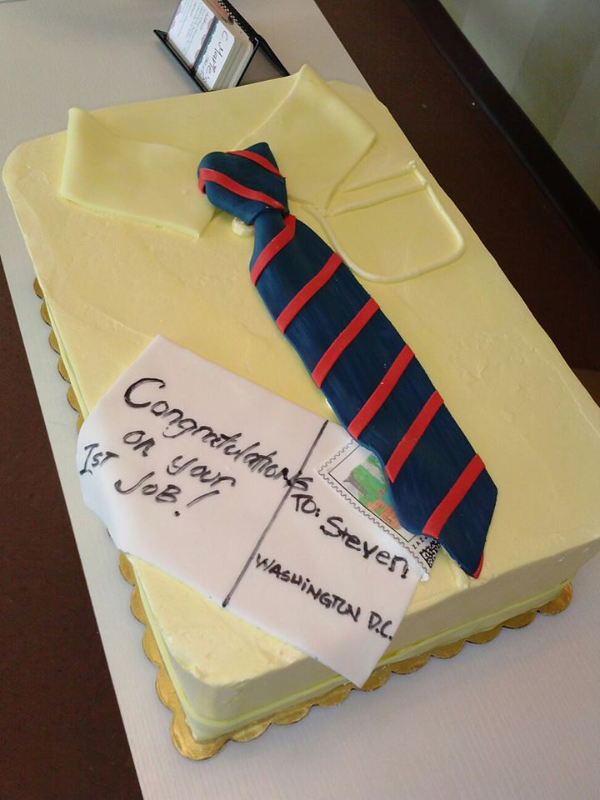 Congratulations
on your
1ST JOB!
TO: Steven
WASHINGTON D.C.